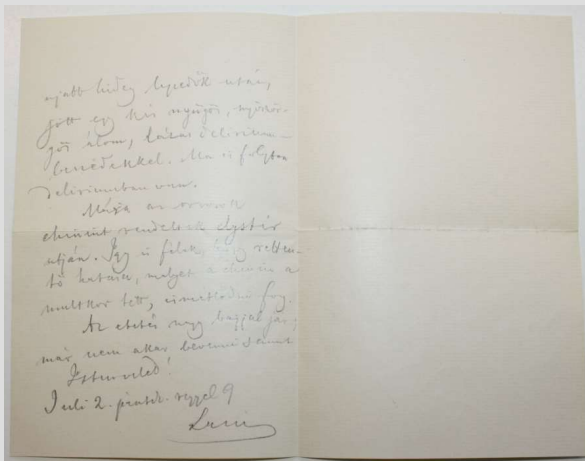 ujabb hideg lepedők után,
jött egy kis nyugós, nyöször-
gős álom, lázas delirium-
beszédekkel. Ma is folyton
deliriumban van.
az orvosok
chinint rendeltek clystir
utján. Így is félek, hogy retten-
tő hatása, melyet a chinin a
multkor tett, ismétlődni fog.
Az etetés nagy bajjal jár;
már nem akar bevenni semmit
Isten veled!
Juli 2. péntek reggel 9